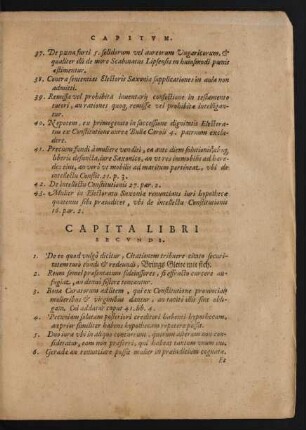 CAPITVM.
37. De pœna furti 5. solidorum vel aureorum Vngaricorum, &
qualiter illi de more Scabinatus Lipsensis in huiusmodi punis
æstimentur.
38. Contra sententias Electoris Saxoniæ supplicationes in aula non
admitti.
39. Remissa vel prohibita inuentarij confectione in testamento
tutori, an rationes quoq; remissæ vel prohibitæ intelligan-
tur.
40. Nepotem, ex primogenito in successione dignitatis Electora-
tus ex Constitutione aurea Bullæ Caroli 4. patruum exclu-
dere.
41. Pretium fundi à muliere venditi, ea ante diem solutionis
liberis defuncta, iure Saxonico, an vt res immobilis ad hære-
des eius, an verò vt mobilis ad maritum pertineat, vbi de
intellectu Constit. 23. p. 3.
42. De intellectu Constitutionis 27. par. 2.
43. Mulier in Electoratu Saxoniæ renuntians iuri hypothecæ
quatenus sibi præiudicet, vbi de intellectu Constitutionis
16. par. 2.
CAPITA LIBRI
SECVNDI.
1. De eo quod vulgò dicitur, Citationem tribuere citato securi-
tatem eundi & redeundi, Bringt Gleite mit sich.
2. Reum semel præsentatum fideiussores, si è iudicio carcere au-
fugiat, an denuò sistere teneantur.
3. Bona Curatorum ad litem, qui ex Constitutione prouinciali
mulieribus & virginibus dantur, an tacitè illis sint obli-
gata. Cui additur caput 41. lib. 4.
4. Pecuniam solutam posteriori creditori habenti hypothecam,
an prior similiter habens hypothecam repetere possit.
5. Duo iura vbi in aliquo concurrunt, quorum alterum non con-
sideratur, eum non præferri, qui habeat tantum vnum ius.
6. Geradæ an renuntiare possit mulier in præiudicium cognatæ.
Et